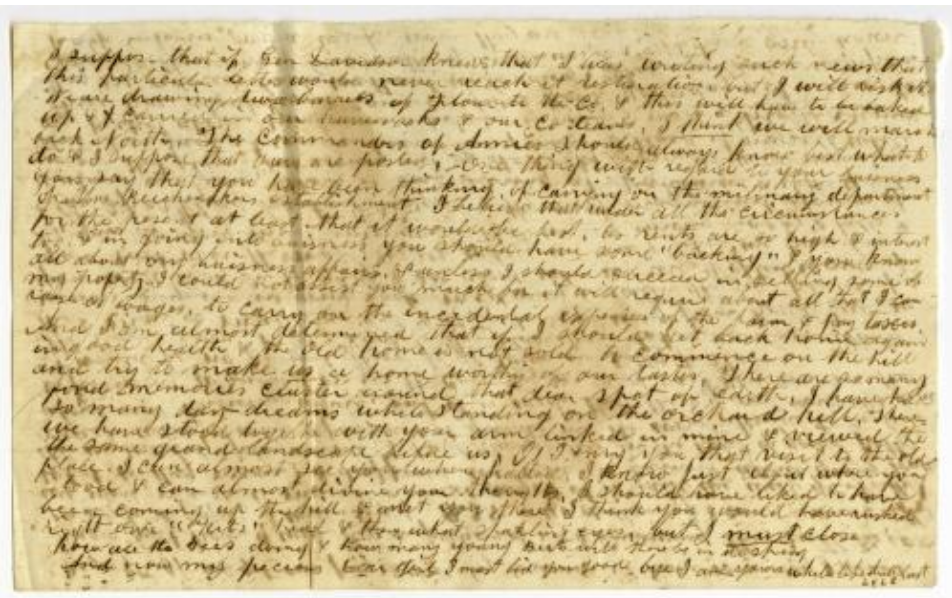 I suppose that if Gen Davidson knew that I was writing such news that
this particular letter would never reach its destination but I will risk it
We are drawing two barrels of flour to the Co. & this will have to be baked
up & carried in our haversacks & our Co teams, I think we will march
North. The Commanders of Armies should always know best what to
do & I suppose that they are posted. One thing with regard to your business
you say that you have been thinking of carrying on the millinary department
establishment. I believe that under all the circumstances
for the present at least that it would be best, as rents are so high &
& in going into buisness you should have some "backing" & you know
all about my buisness affairs, & unless I should succeed in selling some of
my property I could not assist you much for it will require about all that I can
raise of wages, to carry on the incidental expenses of the farm & pay taxes.
And I am almost determined that if I should get back home again
in good health & the old home is not sold to commence on the hill
and try to make us a home worthy of our tastes. There are so many
fond memories cluster around that dear spot of earth, I have had
so many day-dreams while standing on the orchard hill. There
we have stood together with your arm linked in mine & viewed the
the same grand landscape before us. I envy you that visit to the old
place. I can almost see you I know just about where you
stood & can almost divine your thoughts. I should have liked to have
been coming up the hill & met you there I think you would have rushed
right over head & then what sparkling eyes, but I must close
how are the bees doing & how many young
And now my precious dear girl I must bid you good bye I am yours while life shall last